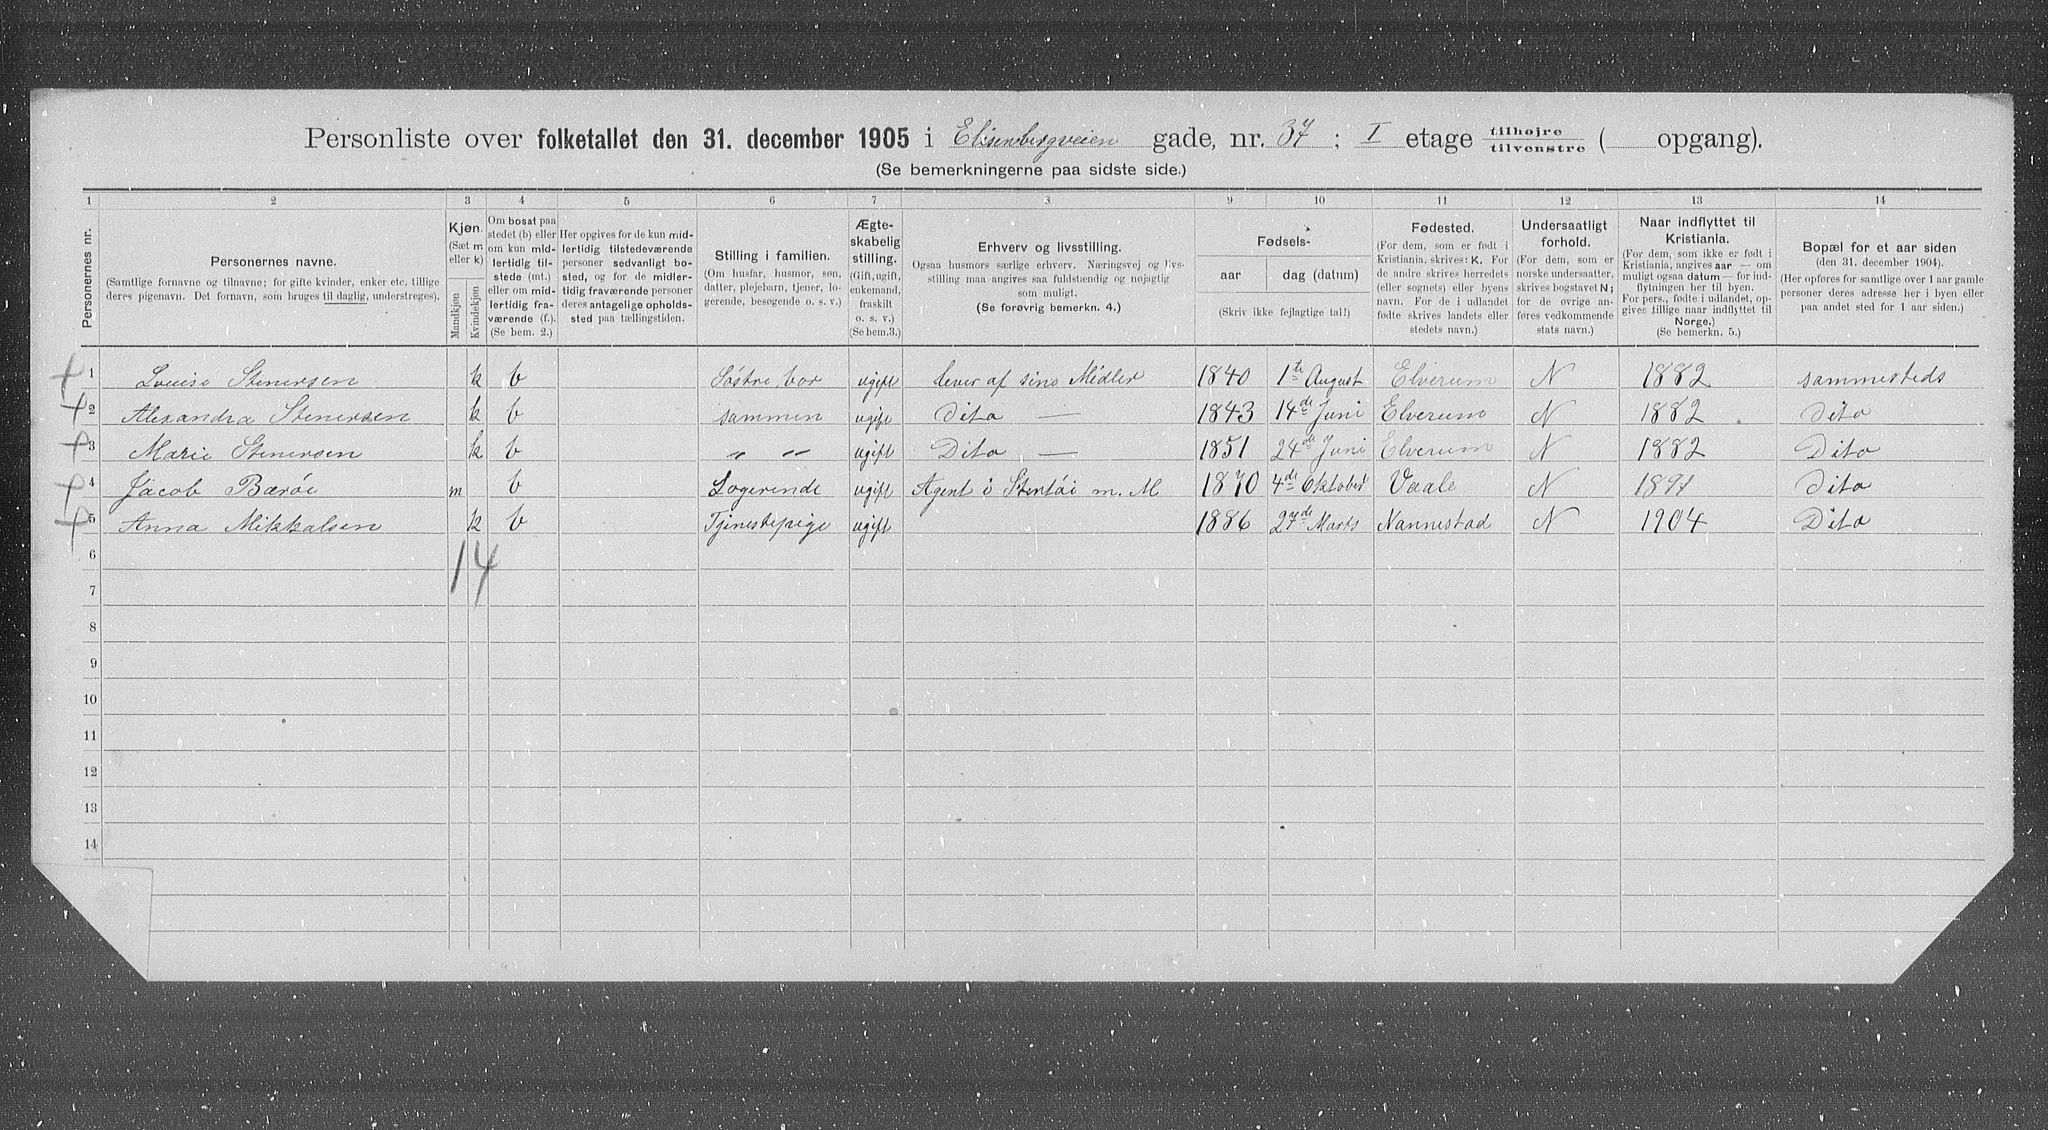 Personliste over folketallet den 31. december 1905 i Elisenbergveien gade, nr. 37 ; I etage tilhøjre tilvenstre ( opgang).
(Se bemerkningerne paa sidste side.)
1 2 3 4 5 6 7 3 9 10 11 12 13 14
Personernes nr.
Personernes navne.
(Samtlige fornavne og tilnavne; for gifte kvinder, enker etc. tillige
deres pigenavn. Det fornavn, som bruges til daglig, understreges).
Kjøn.
(Sæt m
eller k)
Mandkjøn
Kvindekjøn
Om bosat paa
stedet (b) eller
om kun mid-
lertidig til-
stede (mt.)
eller om mid-
lertidig fra-
værende (f.).
(Se bem. 2.)
Her opgives for de kun mid-
lertidig tilstedeværende
personer sedvanligt bo-
sted, og for de midler-
tidig fraværende personer
deres antagelige opholds-
sted paa tællingstiden.
Stilling i familien.
(Om husfar, husmor, søn,
datter, plejebarn, tjener, lo-
gerende, besøgende o. s. v.)
Ægte-
skabelig
stilling.
(Gift, ugift,
enkemand,
fraskilt
o. s. v.)
(Se bem.3.)
Erhverv og livsstilling.
Ogsaa husmors særlige erhverv. Næringsvej og livs-
stilling maa angives saa fuldstændig og nøjagtig
som muligt.
(Se forøvrig bemerkn. 4.)
Fødsels-
aar dag (datum)
(Skriv ikke fejlagtige tal!)
Fødested.
(For dem, som er født i
Kristiania, skrives: K. For
de andre skrives herredets
(eller sognets) eller byens
navn. For de i udlandet
fødte skrives landets eller
stedets navn.)
Undersaatligt
forhold.
(For dem, som er
norske undersaatter,
skrives bogstavet N;
for de øvrige an-
føres vedkommende
stats navn.)
Naar indflyttet til
Kristiania.
(For dem, som ikke er født i
Kristiania, angives aar — om
muligt ogsaa datum — for ind-
flytningen her til byen.
For pers., fødte i udlandet, op-
gives tillige naar indflyttet til
Norge.)
(Se bemerkn. 5.)
Bopæl for et aar siden
(den 31. december 1904).
(Her opføres for samtlige over 1 aar gamle
personer deres adresse her i byen eller
paa andet sted for 1 aar siden.)
1 Louise Stenersen k b Søstre, bor ugift lever af sine Midler 1840 1te August Elverum N 1882 sammesteds
2 Alexandra Stenersen k b sammen ugift Dito — 1843 14de Juni Elverum N 1882 Dito
3 Marie Stenersen k b " " ugift Dito — 1851 24de Juni Elverum N 1882 Dito
4 Jacob Bærøe m b Logerende ugift Agent i Stentøi m. M 1870 4de Oktober Vaale N 1891 Dito
5 Anna Mikkalsen k b Tjenestepige ugift 1886 27de Marts Nannestad N 1904 Dito
6
1 4
7
8
9
10
11
12
13
14